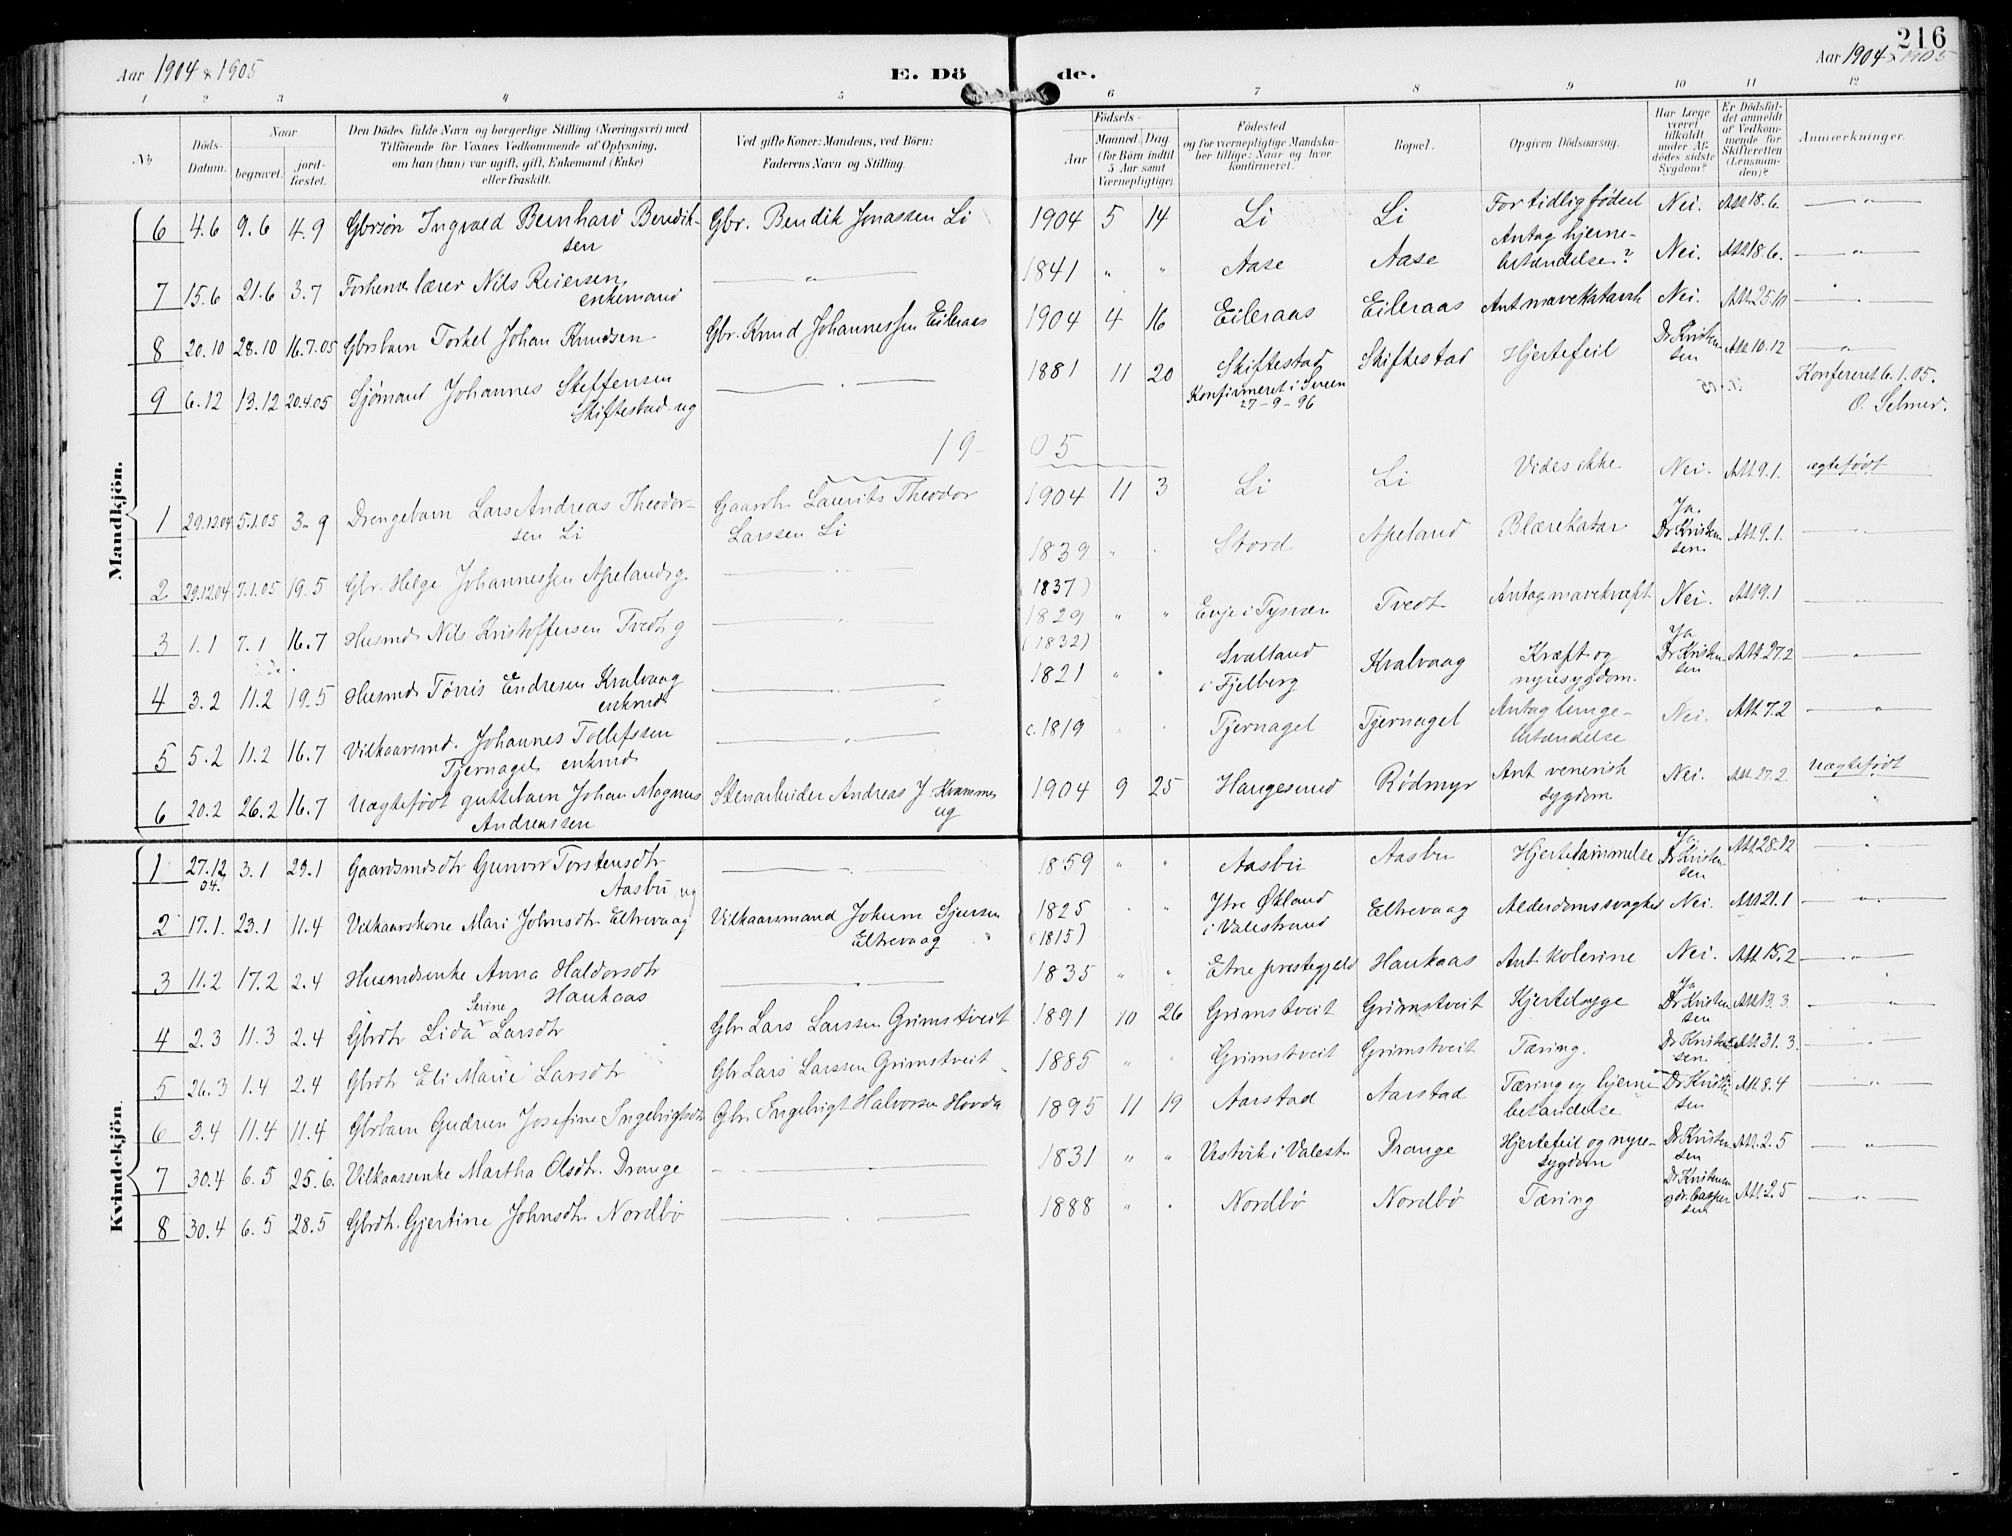 216
Aar 1904 & 1905
E. Dö
de.
Aar 1904 & 1905
1 2 3 4 5 6 7 8 9 10 11 12
No
Döds-Datum.
Naar
begravet.
jord-fæstet.
Den Dödes fulde Navn og borgerlige Stilling (Næringsvei) med
Tilföiende for Voxnes Vedkommende af Oplysning,
om han (hun) var ugift, gift, Enkemand (Enke)
eller fraskilt.
Ved gifte Koner: Mandens, ved Börn:
Faderens Navn og Stilling.
Födsels-
Aar
Maaned. Dag
(for Börn indtil
5 Aar samt
Værnepligtige).
Födested
og for værnepligtige Mandska-
ber tillige: Naar og hvor
konfirmeret.
Bopæl.
Opgiven Dödsaarsag.
Har Læge
været
tilkaldt
under Af-
dödes sidste
Sygdom?
Er Dödsfal-
det anmeldt
af Vedkom-
mende for
Skifteretten
(Lensman-
den)?
Anmærkninger.
Mandkjön.
6 4.6 9.6 4.9 Gbrsøn Ingvald Bernhard Bendik- Gbr. Bendik Jonassen Li 1904 5 14 Li Li For tidlig fødsel Nei. Att 18.6. — " —
sen
7 15.6 21.6 3.7 Forhenv lærer Nils Reiersen — " — 1841 " " Aase Aase Antag hjerne- Nei. Att 18.6. — " —
enkemand betændelse?
8 20.10 28.10 16.7.05 Gbrbarn Torkel Johan Knudsen Gbr. Knud Johannessen Eileraas 1904 4 16 Eileraas Eileraas Ant mavekatarrh Nei. Att 25.10 — " —
9 6.12 13.12 20.4.05 Sjømand Johannes Steffensen — " — 1881 11 20 Skiftestad Skiftestad Hjertefeil Dr Kristen- Att 10.12 — " —
Skiftestad ug Konfirmeret i Sveen sen Konfereret 6.1.05.
27-9-96 O. Selmer.
19 05
1 29.12.04 5.1.05 3-9 Drengebarn Lars Andreas Theodor- Gaardbr Laurits Theodor 1904 11 3 Li Li Vides ikke Nei. Att 9.1. ægtefødt
sen Li Larssen Li
2 29.12.04 7.1.05 19.5 Gbr. Helge Johannessen Apeland g. — " — 1839 " " Stord Apeland Blærekatar Ja. Dr Kristen- Att 9.1. — " —
(1837) sen.
3 1.1 7.1 16.7 Husmd Nils Kristoffersen Tvedt g — " — 1829 " " Evje i Tysvær Tvedt Antag mavekræft Nei. Att 9.1 — " —
(1832)
4 3.2 11.2 19.5 Husmd Tørris Endresen Kvalvaag — " — 1821 " " Svalland Kvalvaag Kræft og Ja Dr Kristen- Att 27.2 — " —
enkmd i Fjelberg nyresygdom. sen
5 5.2 11.2 16.7 Vilkaarsmd. Johannes Tollefssen — " — c. 1819 " " Tjernagel Tjernagel Antag lunge- Nei. Att 7.2 — " —
Tjernagel enkmd betændelse
6 20.2 26.2 16.7 Uægtefødt guttebarn Johan Magnus Stenarbeider Andreas J. Kvammen 1904 9 25 Haugesund Rødmyr Ant. venerisk Nei. Att. 27.2 uægtefødt
Andreassen ug sygdom "
Kvindekjön.
1 27.12 3.1 29.1 Gaardmdsdtr Gunvor Torstensdtr — " — 1859 " " Aasbu Aasbu Hjertelammelse Ja Dr Kristen- Att 28.12 — " —
04. Aasbu ug sen
2 17.1. 23.1 11.4 Vilkaarskone Mari Johnsdtr Eltrevaag Vilkaarsmand Jokum Sjursen 1825 " " Ytre Økland Eltrevaag Alderdomssvaghed Nei. Att 21.1 — " —
Eltrevaag (1815) i Valestrand
3 11.2 17.2 2.4 Husmdsenke Anna Haldorsdtr — " — 1835 " " Etne prestegjeld Haukaas Ant. Kolerine Nei. Att 15.2 — " —
Haukaas
4 2.3 11.3 2.4 Gbrdtr Lida Serine Larsdtr Gbr Lars Larssen Grimstveit 1891 10 26 Grimstveit Grimstveit Kjertelsyge Ja Dr Kristen- Att 13.3. — " —
sen
5 26.3 1.4 2.4 Gbrdtr Eli Marie Larsdtr Gbr Lars Larssen Grimstveit 1885 " " Grimstveit Grimstveit Tæring. Dr Kristen- Att 31.3. — " —
sen.
6 3.4 11.4 11.4 Gbrbarn Gudrun Josefine Ingebrigtsdtr Gbr. Ingebrigt Halvorsen Hovda 1895 11 19 Aarstad Aarstad Tæring og hjerne- Dr Kristen- Att 8.4 — " —
betændelse sen
7 30.4 6.5 25.6. Vilkaarsenke Martha Olsdtr. Drange — " — 1831 " " Vestvik i Valestr. Drange Hjertefeil og nyre- Dr Kristen- Att. 2.5 — " —
sygdom sen
8 30.4 6.5 28.5 Gbrdtr. Gjertine Johnsdtr Nordbø — " — 1888 " " Nordbø Nordbø Tæring Dr Kristensen Att 2.5 — " —
og dr. Casper-
sen